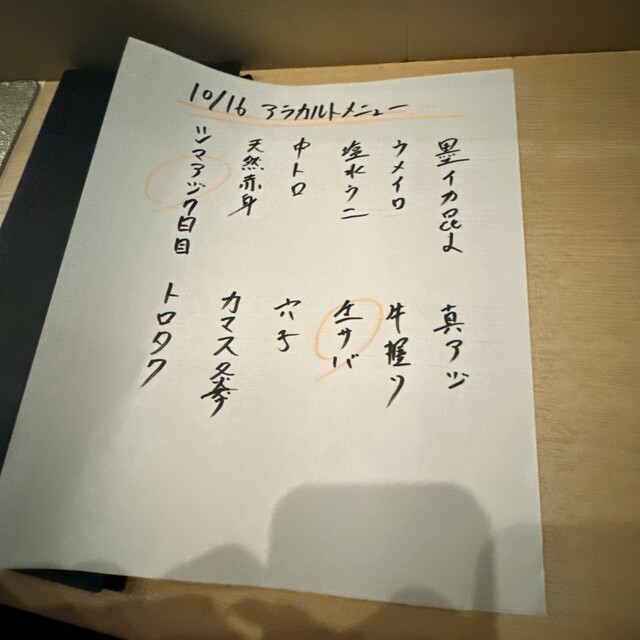 10/16 アラカルトメニュー
墨イカ
ウメイロ
塩水ウニ
中トロ
天然赤身
シマアジ7日目
真アジ
牛握り
生サバ
穴子
カマス
トロタク